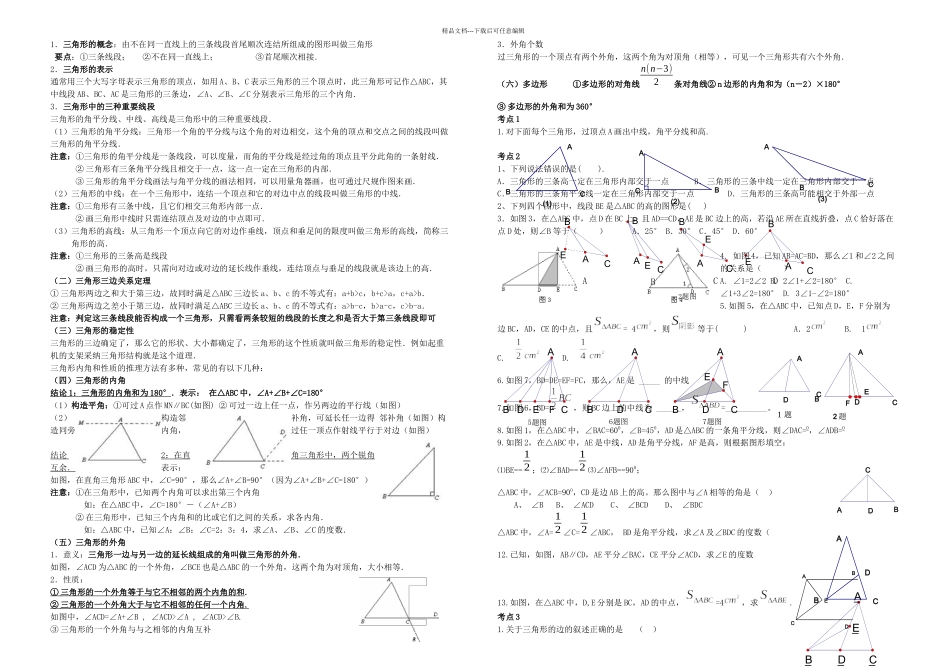 精品文档---下载后可任意编辑
1．三角形的概念：由不在同一直线上的三条线段首尾顺次连结所组成的图形叫做三角形
要点：①三条线段； ②不在同一直线上； ③首尾顺次相接．
2．三角形的表示
通常用三个大写字母表示三角形的顶点，如用A、B、C表示三角形的三个顶点时，此三角形可记作△ABC，其
中线段AB、BC、AC是三角形的三条边，∠A、∠B、∠C分别表示三角形的三个内角．
3．三角形中的三种重要线段
三角形的角平分线、中线、高线是三角形中的三种重要线段．
（1）三角形的角平分线：三角形一个角的平分线与这个角的对边相交，这个角的顶点和交点之间的线段叫做
三角形的角平分线．
注意：①三角形的角平分线是一条线段，可以度量，而角的平分线是经过角的顶点且平分此角的一条射线．
②三角形有三条角平分线且相交于一点，这一点一定在三角形的内部．
③三角形的角平分线画法与角平分线的画法相同，可以用量角器画，也可通过尺规作图来画．
（2）三角形的中线：在一个三角形中，连结一个顶点和它的对边中点的线段叫做三角形的中线．
注意：①三角形有三条中线，且它们相交三角形内部一点．
②画三角形中线时只需连结顶点及对边的中点即可．
（3）三角形的高线：从三角形一个顶点向它的对边作垂线，顶点和垂足间的限度叫做三角形的高线，简称三
角形的高．
注意：①三角形的三条高是线段
②画三角形的高时，只需向对边或对边的延长线作垂线，连结顶点与垂足的线段就是该边上的高．
（二）三角形三边关系定理
①三角形两边之和大于第三边，故同时满足△ABC三边长a、b、c的不等式有：a+b>c，b+c>a，c+a>b．
②三角形两边之差小于第三边，故同时满足△ABC三边长a、b、c的不等式有：a>b-c，b>a-c，c>b-a．
注意：判定这三条线段能否构成一个三角形，只需看两条较短的线段的长度之和是否大于第三条线段即可
（三）三角形的稳定性
三角形的三边确定了，那么它的形状、大小都确定了，三角形的这个性质就叫做三角形的稳定性．例如起重
机的支架采纳三角形结构就是这个道理．
三角形内角和性质的推理方法有多种，常见的有以下几种：
（四）三角形的内角
结论1：三角形的内角和为180°．表示： 在△ABC中，∠A+∠B+∠C=180°
（1）构造平角：①可过A点作MN∥BC(如图) ②可过一边上任一点，作另两边的平行线（如图）
（2） 构造邻 补角，可延长任一边得 邻补角（如图）构
造同旁 内角， 过任一顶点作射线平行于对边（如图）
结论 2：在直 角三角形中，两个锐角
互余． 表示：
如图，在直角三角形ABC中，∠C=90°，那么∠A+∠B=90°（因为∠A+∠B+∠C=180°）
注意：①在三角形中，已知两个内角可以求出第三个内角
如：在△ABC中，∠C=180°－（∠A+∠B）
②在三角形中，已知三个内角和的比或它们之间的关系，求各内角．
如：△ABC中，已知∠A：∠B：∠C=2：3：4，求∠A、∠B、∠C的度数．
（五）三角形的外角
1．意义：三角形一边与另一边的延长线组成的角叫做三角形的外角．
如图，∠ACD为△ABC的一个外角，∠BCE也是△ABC的一个外角，这两个角为对顶角，大小相等．
2．性质：
①三角形的一个外角等于与它不相邻的两个内角的和．
②三角形的一个外角大于与它不相邻的任何一个内角．
如图中，∠ACD=∠A+∠B , ∠ACD>∠A , ∠ACD>∠B.
③三角形的一个外角与与之相邻的内角互补
3．外角个数
过三角形的一个顶点有两个外角，这两个角为对顶角（相等），可见一个三角形共有六个外角．
（六）多边形 ①多边形的对角线 n(n−3)/2 条对角线②n边形的内角和为（n－2）×180°
③多边形的外角和为360°
考点1
1.对下面每个三角形，过顶点A画出中线，角平分线和高．
考点2
1、下列说法错误的是( )．
A．三角形的三条高一定在三角形内部交于一点 B．三角形的三条中线一定在三角形内部交于一点
C．三角形的三条角平分线一定在三角形内部交于一点 D．三角形的三条高可能相交于外部一点
(1) (2) (3)
2、下列四个图形中，线段BE是△ABC的高的图形是( )
3．如图3，在△ABC中，点D在BC上，且AD==CD，AE是BC边上的高，若沿AE所在直线折叠，点C恰好落在
点D处，则∠B等于（ ） A．25° B．30° C．45° D．60°
4．如图4，已知AB=AC=BD，那么∠1和∠2之间
的关系是（
A．∠1=2∠2 B．2∠1+∠2=180° C．
∠1+3∠2=180° D．3∠1-∠2=180°
图3
5.如图5，在△ABC中，已知点D，E，F分别为
边BC，AD，CE的中点，且 S△ABC = 4cm²，则 S阴影 等于( ) A．2cm² B．1cm²
C．1/2 cm² D．1/4 cm²
6.如图7，BD=DE=EF=FC，那么，AE是 的中线
5题图 6题图 7题图 1题 2题
8.如图1，在△ABC中，∠BAC=60⁰，∠B=45⁰，AD是△ABC的一条角平分线，则∠DAC=⁰，∠ADB=⁰
9.如图2，在△ABC中，AE是中线，AD是角平分线，AF是高，则根据图形填空：
⑴BE==1/2；⑵∠BAD==1/2⑶∠AFB==90⁰；
△ABC中，∠ACB=90⁰，CD是边AB上的高。那么图中与∠A相等的角是（ ）
A、 ∠B B、 ∠ACD C、 ∠BCD D、 ∠BDC
△ABC中，∠A=1/2∠C=1/2∠ABC， BD是角平分线，求∠A及∠BDC的度数（
12.已知，如图，AB∥CD，AE平分∠BAC，CE平分∠ACD，求∠E的度数
13.如图，在△ABC中，D,E分别是BC，AD的中点， S△ABC=4cm²，求 S△ABE．
考点3
1.关于三角形的边的叙述正确的是 （ ）